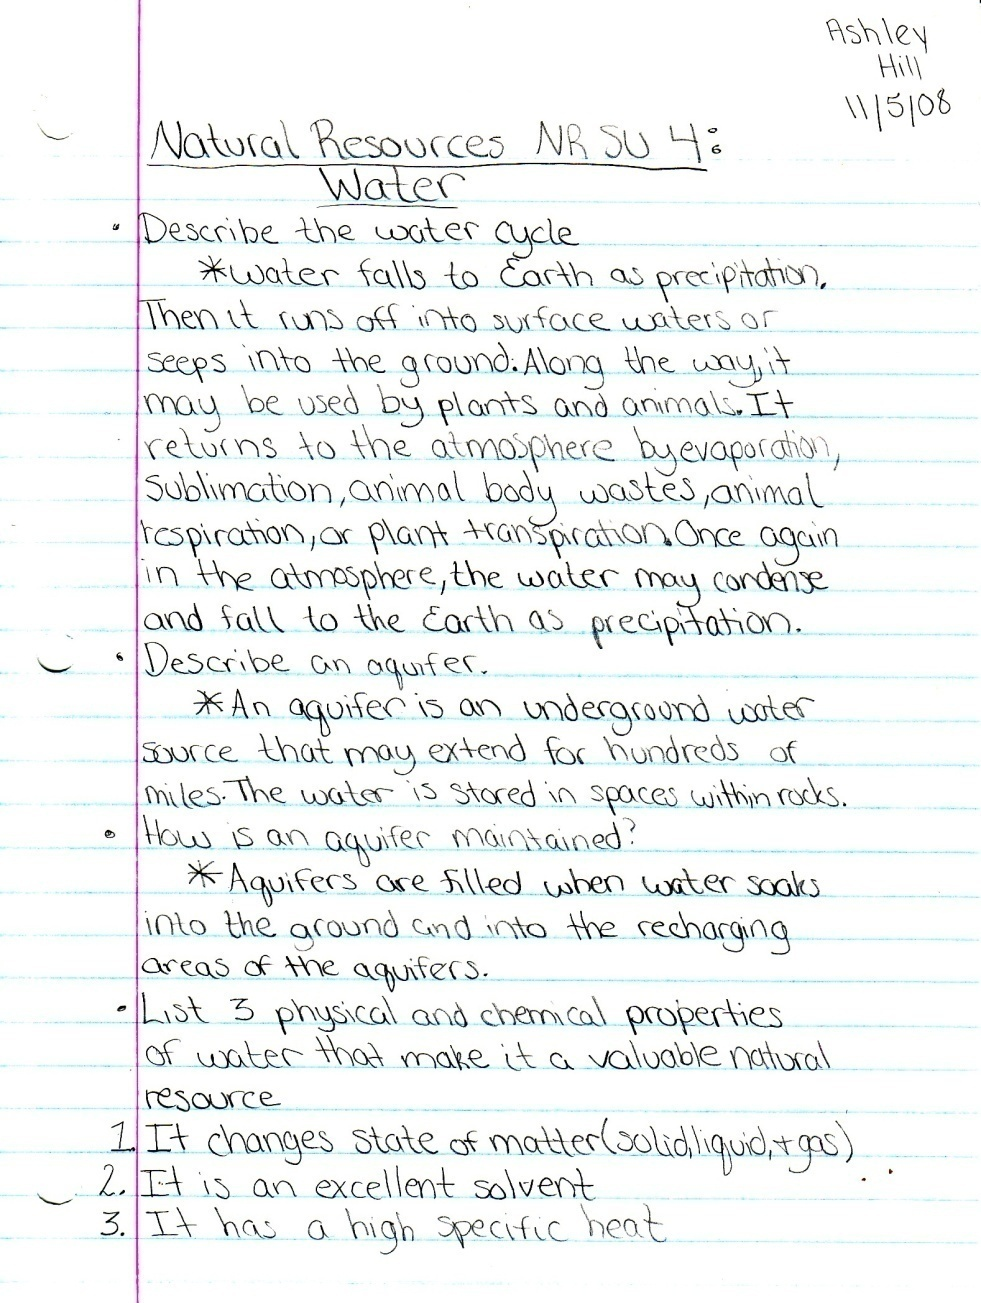 Ashley
Hill
11/5/08
Natural Resources NR SU 4:
Water
• Describe the water cycle
*Water falls to Earth as precipitation.
Then it runs off into surface waters or
seeps into the ground. Along the way, it
may be used by plants and animals. It
returns to the atmosphere by evaporation,
sublimation, animal body wastes, animal
respiration, or plant transpiration. Once again
in the atmosphere, the water may condense
and fall to the Earth as precipitation.
• Describe an aquifer.
*An aquifer is an underground water
source that may extend for hundreds of
miles. The water is stored in spaces within rocks.
• How is an aquifer maintained?
*Aquifers are filled when water soaks
into the ground and into the recharging
areas of the aquifers.
• List 3 physical and chemical properties
of water that make it a valuable natural
resource
1. It changes state of matter (solid, liquid, + gas)
2. It is an excellent solvent
3. It has a high specific heat